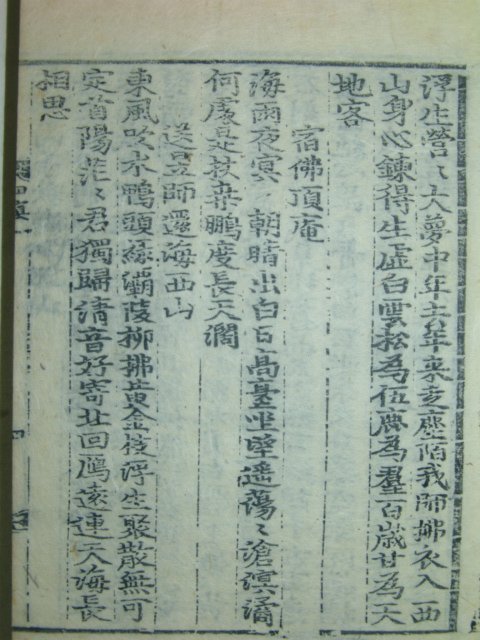 浮生營〻大夢中年去年来走塵陌我師拂衣入西
山身心鍊得生虛白雲松為伍麋為羣百歲甘為天
地客
宿佛頂庵
海雨夜冥〻朝晴出白日高臺坐望遥蕩〻滄溟濶
何處是扶桑鵬度長天濶
送 師還海西山
東風吹水鴨頭綠灞陵柳拂黃金枝浮生聚散無可
定首陽茫〻君獨歸清音好寄北回鴈遠連天海長
相思